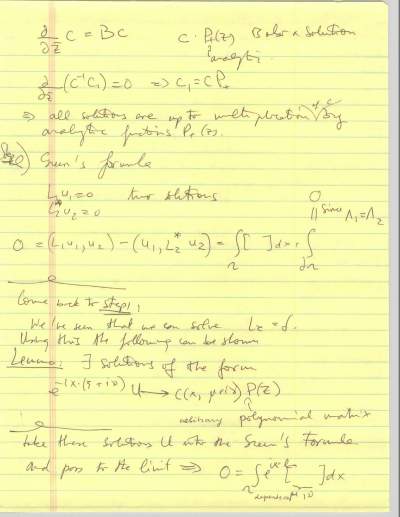 ∂/∂z̄ C = BC   C · P₊(z) is also a solution
analytic
∂/∂z̄ (C⁻¹C₁) = 0 ⇒ C₁ = CP₊
⇒ all solutions are up to multiplication of C by
analytic functions P₊(z).
Green's formula
L₁u₁ = 0   two solutions
L₂*u₂ = 0
0
|| since Λ₁ = Λ₂
0 = (L₁u₁, u₂) − (u₁, L₂* u₂) = ∫_Ω [ ] dx + ∫_∂Ω
Come back to step 1,
We've seen that we can solve L = δ.
Using this the following can be shown
Lemma: ∃ solutions of the form
U → C(x, ) P(z)
arbitrary polynomial matrix
take these solutions U into the Green's Formula
and pass to the limit ⇒ 0 = ∫_Ω [ ] dx